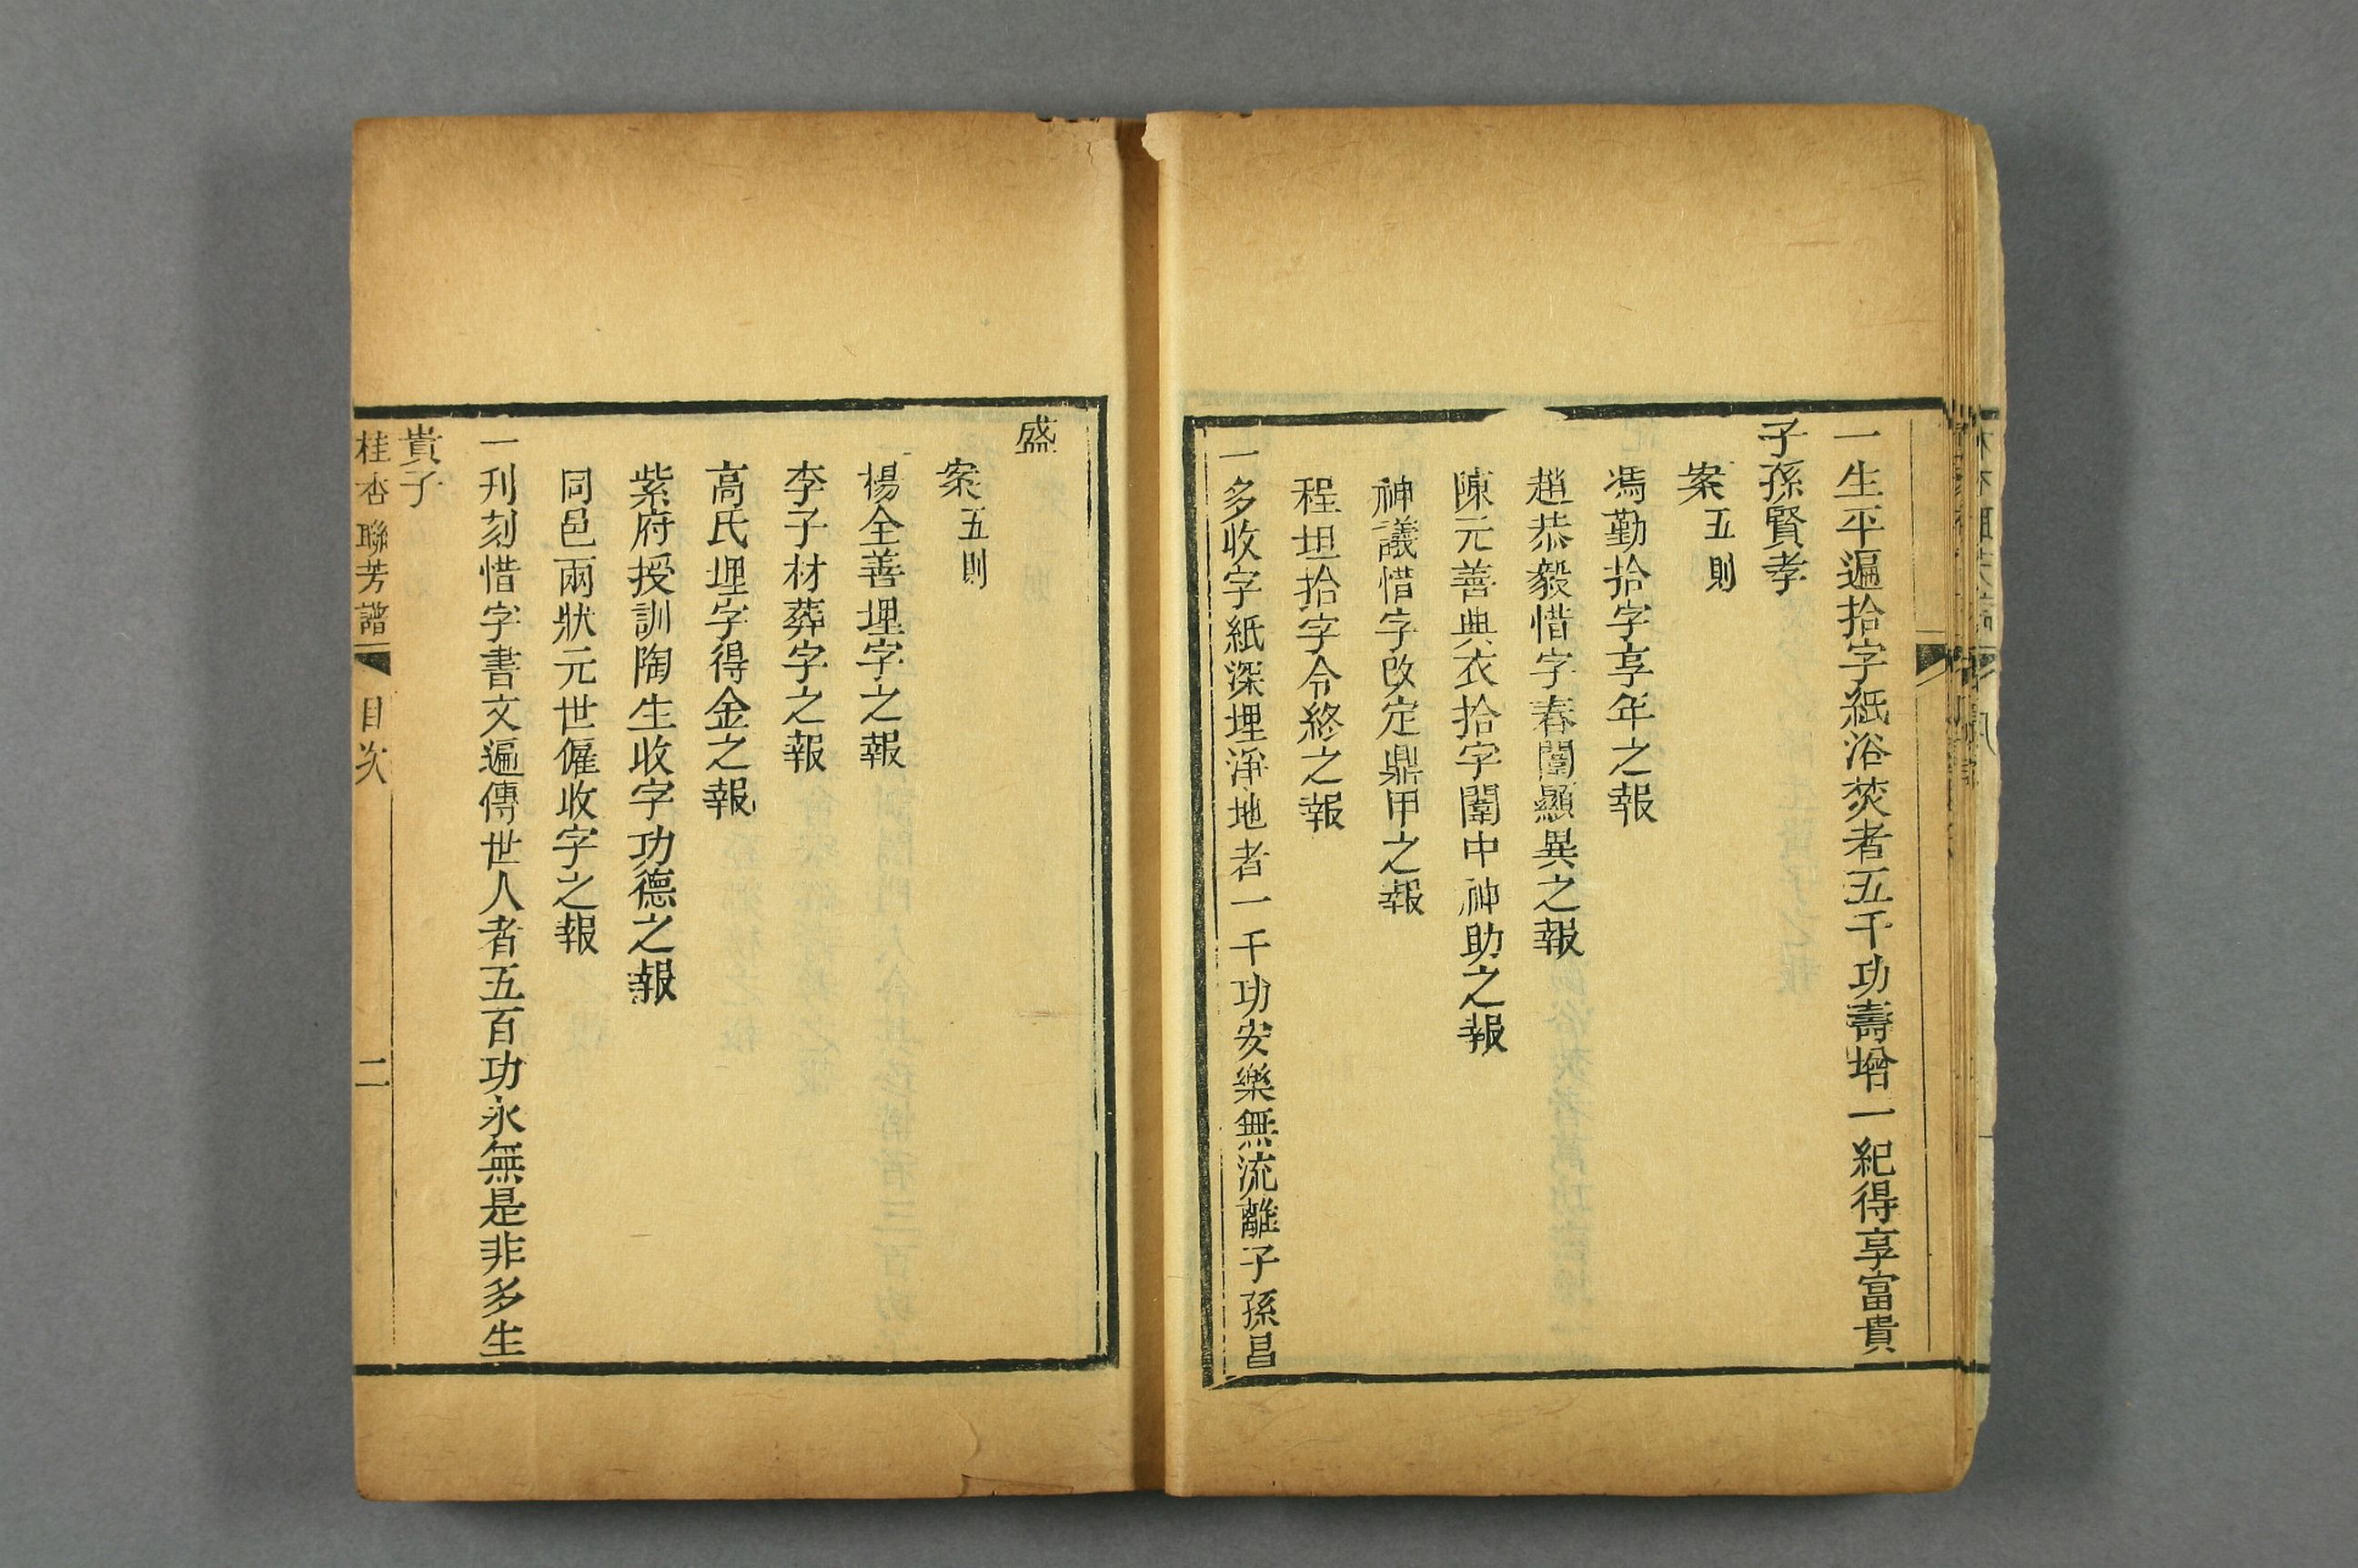 一生平遍拾字紙浴焚者五千功壽增一紀得享富貴
子孫賢孝
案五則
馮勤拾字享年之報
趙恭毅惜字春闈顯異之報
陳元善典衣拾字闈中神助之報
神議惜字改定鼎甲之報
程坦拾字令終之報
一多收字紙深埋淨地者一千功安樂無流離子孫昌
盛
案五則
楊全善埋字之報
李子材葬字之報
高氏埋字得金之報
紫府授訓陶生收字功德之報
同邑兩狀元世僱收字之報
一刋刻惜字書文遍傳世人者五百功永無是非多生
貴子
桂杏聯芳譜 目次 二